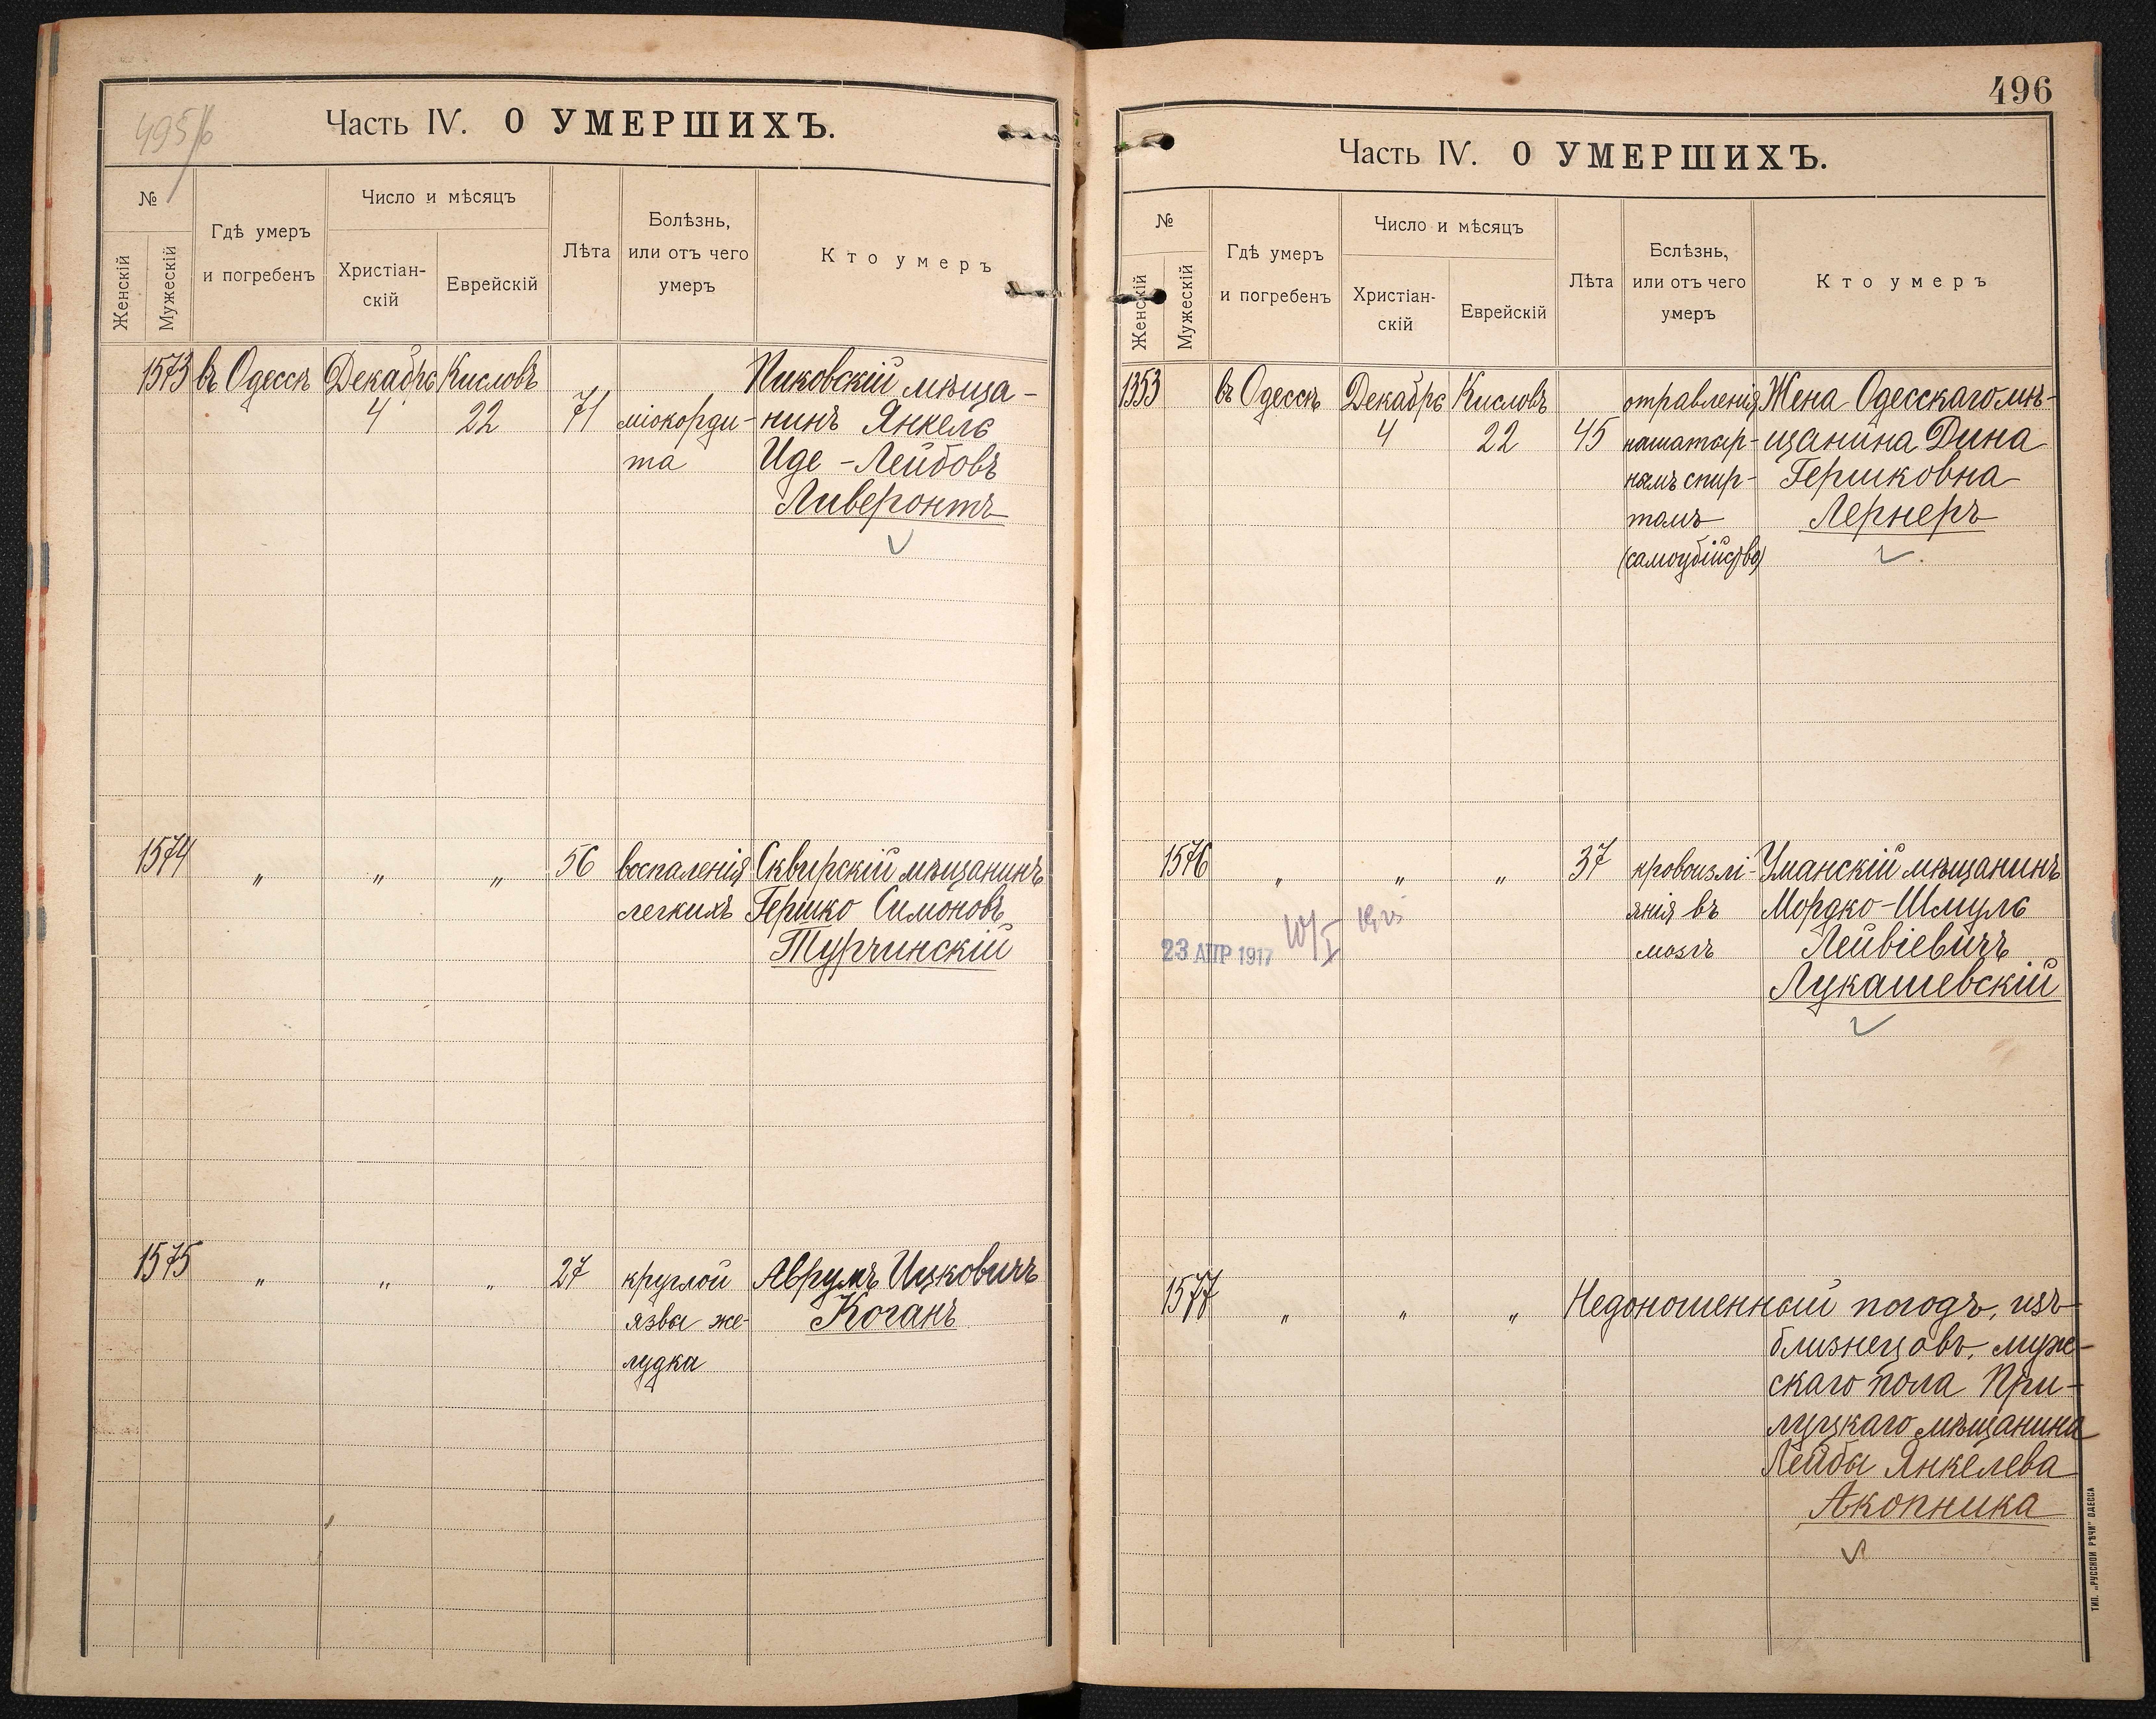 495/6
Часть IV. О УМЕРШИХЪ.
№
Женскій
Мужескій
Гдѣ умеръ
и погребенъ
Число и мѣсяцъ
Христіан-
скій
Еврейскій
Лѣта
Болѣзнь,
или отъ чего
умеръ
Кто умеръ
1573 въ Одессѣ Декабрь Кисловъ Пиковскій мѣща-
4 22 71 міокорди- нинъ Янкель
та Иде-Лейбовъ
Ливеронтъ
1574 „ „ „ 56 воспаленія Сквирскій мѣщанинъ
легкихъ Гершко Симоновъ
Турчинскій
1575 „ „ „ 27 круглой Аврумъ Ицковичъ
язвы же- Коганъ
лудка
496
Часть IV. О УМЕРШИХЪ.
№
Женскій
Мужескій
Гдѣ умеръ
и погребенъ
Число и мѣсяцъ
Христіан-
скій
Еврейскій
Лѣта
Бслѣзнь,
или отъ чего
умеръ
Кто умеръ
1353 въ Одессѣ Декабрь Кисловъ отравленія Жена Одесскаго мѣ-
4 22 45 нашатыр- щанина Дина
нымъ спир- Гершковна
томъ Лернеръ
(самоубійство)
1576 „ „ „ 37 кровоизлі- Уманскій мѣщанинъ
янія въ Мордко-Шмуль
мозгъ Лейвіевичъ
23 АПР 1917
Лукашевскій
1577 „ „ „ Недоношенный плодъ, изъ
близнецовъ, муж-
скаго пола При-
луцкаго мѣщанина
Лейбы Янкелева
Акопника
ТИП. „РУССКОЙ РѢЧИ" ОДЕССА